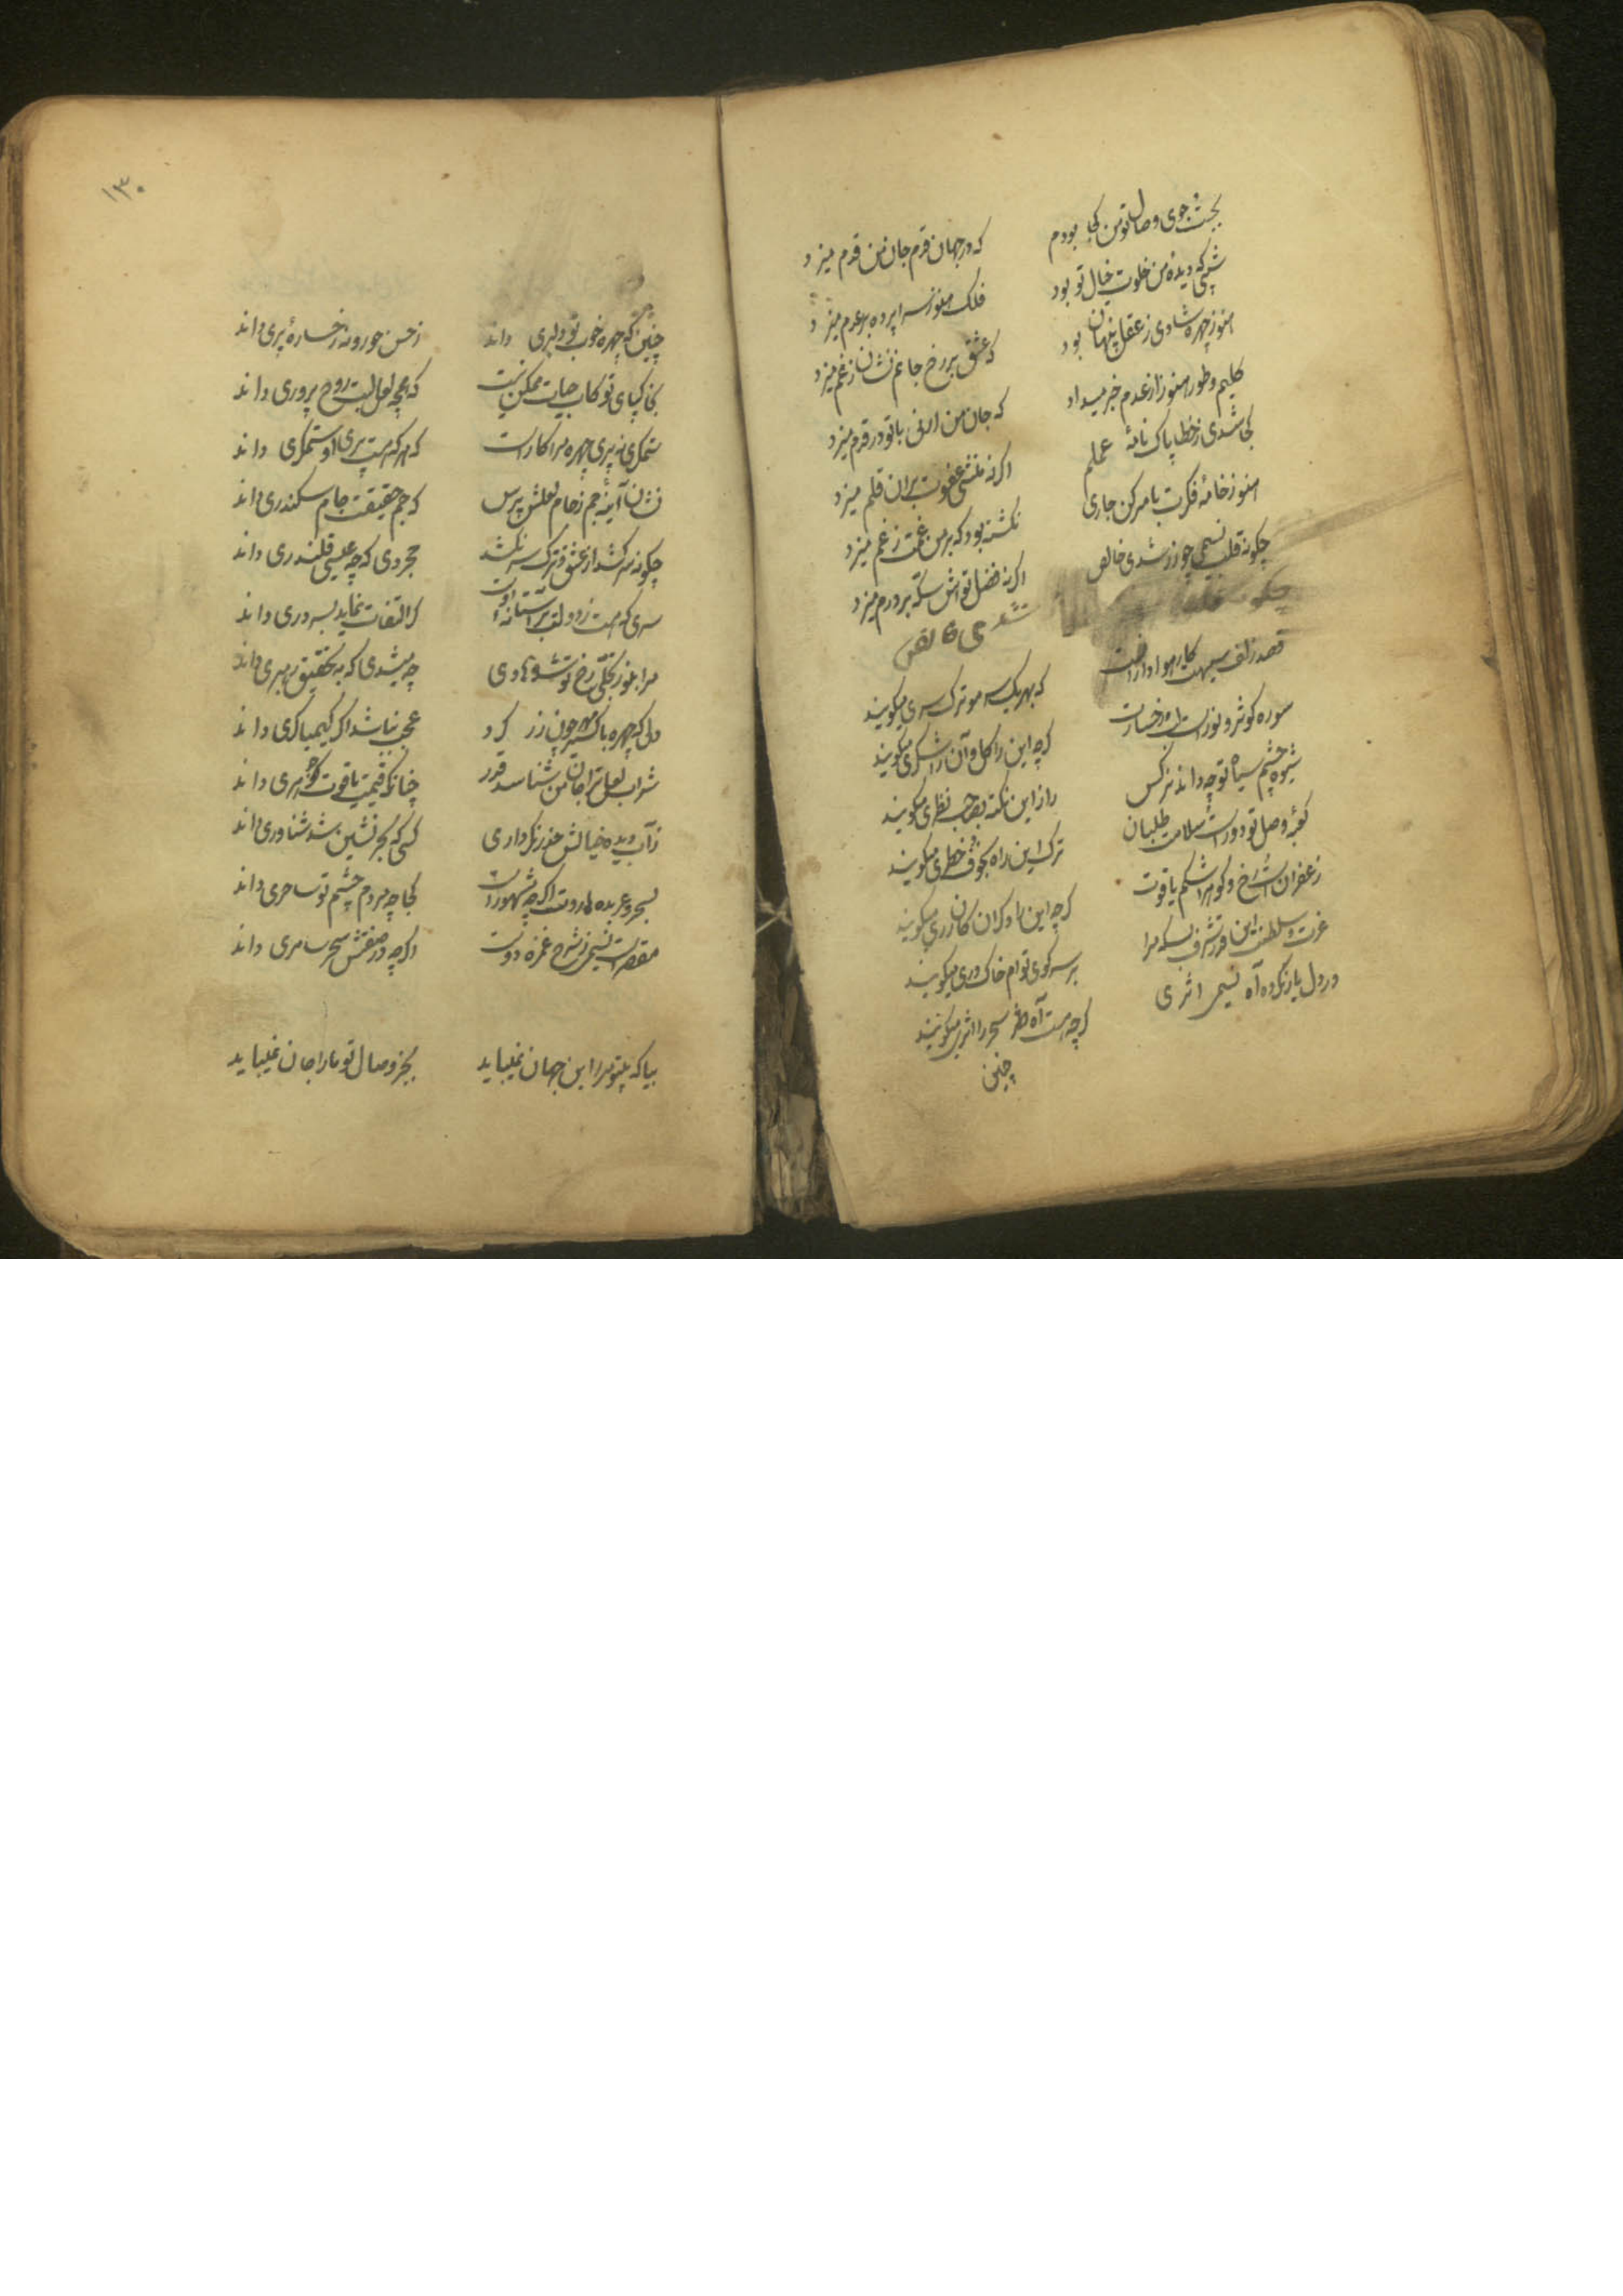 بجست جوی وصال تو من کجا بودم که در جهان قدم جان من قدم میزد
شبی که دیدهٔ من خلوت خیال تو بود فلک هنوز سراپرده بر عدم میزد
هنوز چهره شادی ز عقل پنهان بود که عشق بر رخ جانم نشان ز غم میزد
کلیم و طور هنوز از عدم خبر میداد که جان من ارنی با تو در قدم میزد
کی شدی ز خطا پاک نامهٔ عملم اگر نه منشی عفوت بران قلم میزد
هنوز خامهٔ فکرت بامر کن جاری نگشته بود که بر من غمت رقم میزد
چگونه قلب نسیمی چو زر شدی خالص اگر نه فضل تواش سکه بر درم میزد
قصد زلف سیهت کار هوادارانست که بهر یک سر مو ترک سری میگویند
سوره کوثر و نورست رخسارت گرچه این را گل و آن را شکری میگویند
شیوه چشم سیاه تو چه داند نرگس راز این نکته بصاحب نظری میگویند
کعبهٔ وصل تو دورست سلامت طلبان ترک این راه بخوف خطری میگویند
زعفران است رخ و گوهر اشکم یاقوت گرچه این را و گران کان زری میگویند
عزت و سلطنت این قدر شرف بسکه مرا بر سر کوی توام خاک دری میگویند
در دل یار نکرد آه نسیمی اثری گرچه هست آه سحر را اثری میگویند
چنین
۱۳۰
چنین که چهره خوب تو دلبری داند ز حسن حور و نه رخسارهٔ پری داند
بخاکپای تو کاب حیات ممکن نیست که همچو لعل لبت روح پروری داند
ستمگری نه پری چهره مرا کارست که هر که هست پری او ستمگری داند
نشان آینهٔ جم ز جام لعلش پرس که جم حقیقت جام سکندری داند
چگونه سر کشد از عشق و ترک سر نکند مجردی که چو عیسی قلندری داند
سری که هست ز دولت بر آستانه اوت کی التفات نماید بسروری داند
مرا بنور تجلی رخ تو شد هادی چه میشدی که به تحقیق رهبری داند
دلی که چهره باکسیر مهر چون زر کرد عجب نباشد اگر کیمیاگری داند
شراب لعل ترا جان من شناسد قدر چنانکه قیمت یاقوت گوهری داند
ز آب دیده خیالش حذر نکرد آری کسی که بحر نشین شد شناوری داند
بسحر و عربده هاروت اگرچه مشهورست کجا چو مردم چشم تو ساحری داند
مقصرست نسیمی ز شرح غمزه دوست اگرچه در صفتش سحر سامری داند
بیا که بیتو مرا این جهان نمیباید بجز وصال تو ما را جان نمیباید